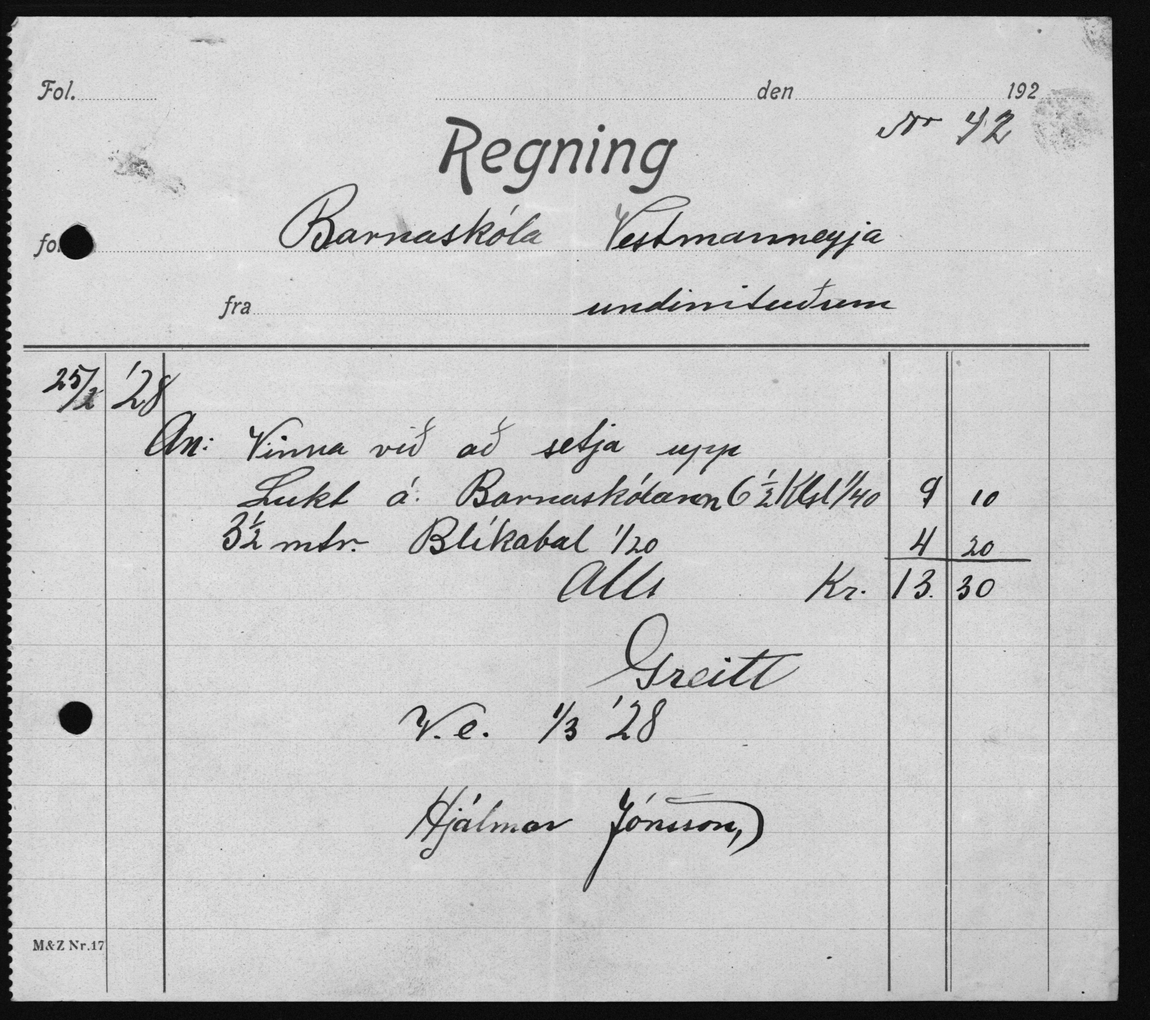 Fol. den 192
Nr 42
Regning
for Barnaskóla Vestmanneyja
fra undirrituðum
25/2 '28
An: Vinna við að setja upp
Lukt á. Barnaskólann 6½ Klst 1/40 9 10
3½ mtr. Blíkabal 1/20 4 20
Alls Kr. 13. 30
Greitt
V.e. 1/3 '28
Hjálmar Jónsson,
M&Z Nr.17